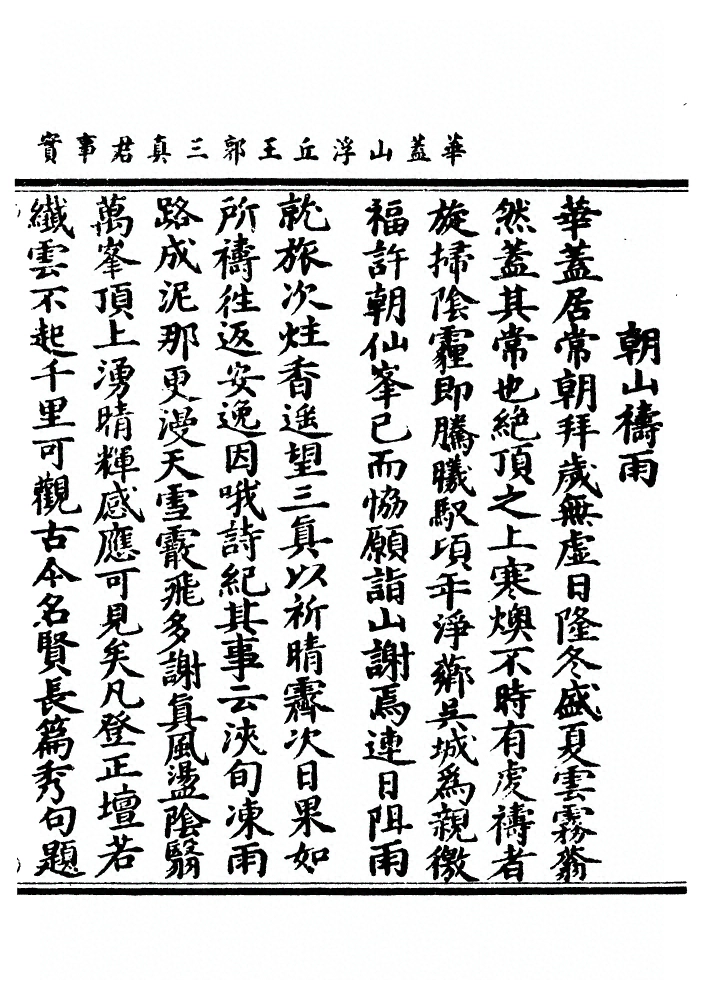 華蓋山浮丘王郭三真君事實
朝山禱雨
華蓋居常朝拜歲無虛日隆冬盛夏雲霧蓊
然蓋其常也絕頂之上寒燠不時有虔禱者
旋掃陰霾即騰曦馭頃年淨薌吳城為親徼
福許朝仙峯已而協願詣山謝焉連日阻雨
就旅次炷香遥望三真以祈晴霽次日果如
所禱徃返安逸因哦詩紀其事云浹旬凍雨
路成泥那更漫天雪霰飛多謝真風盪陰翳
萬峯頂上湧晴輝感應可見矣凡登正壇若
纖雲不起千里可觀古今名賢長篇秀句題